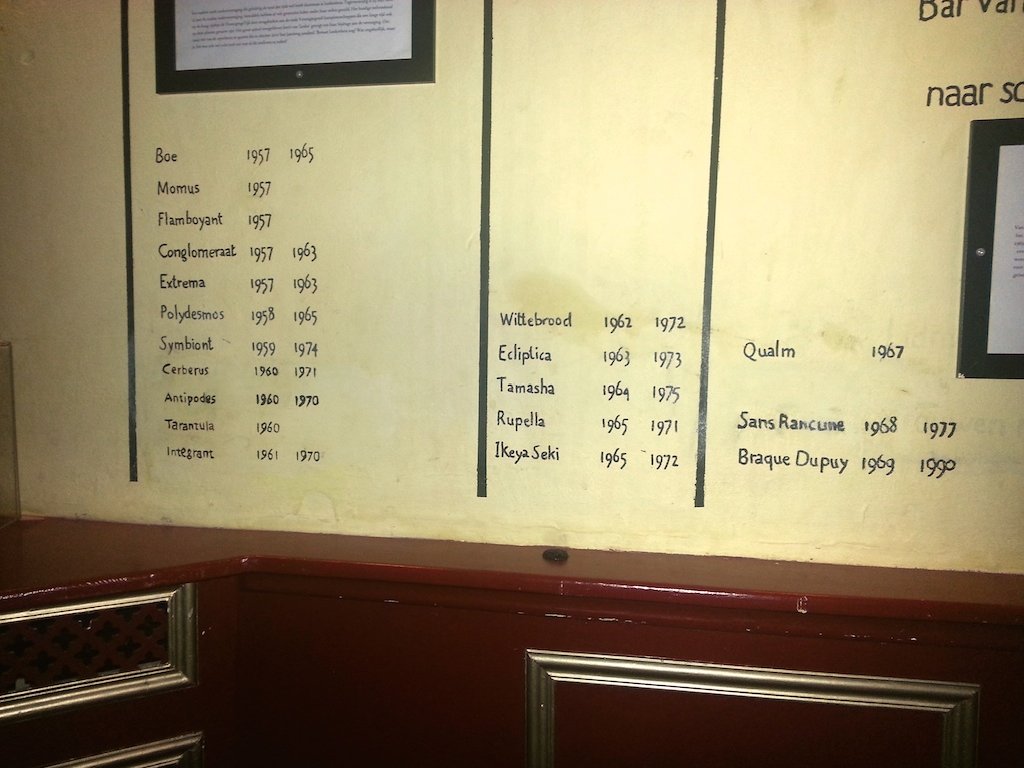 Boe 1957 1965
Momus 1957
Flamboyant 1957
Conglomeraat 1957 1963
Extrema 1957 1963
Polydesmos 1958 1965
Symbiont 1959 1974
Cerberus 1960 1971
Antipodes 1960 1970
Tarantula 1960
Integrant 1961 1970
Wittebrood 1962 1972
Ecliptica 1963 1973
Tamasha 1964 1975
Rupella 1965 1971
Ikeya Seki 1965 1972
Bar Van
naar
Qualm 1967
Sans Rancune 1968 1977
Braque Dupuy 1969 1990